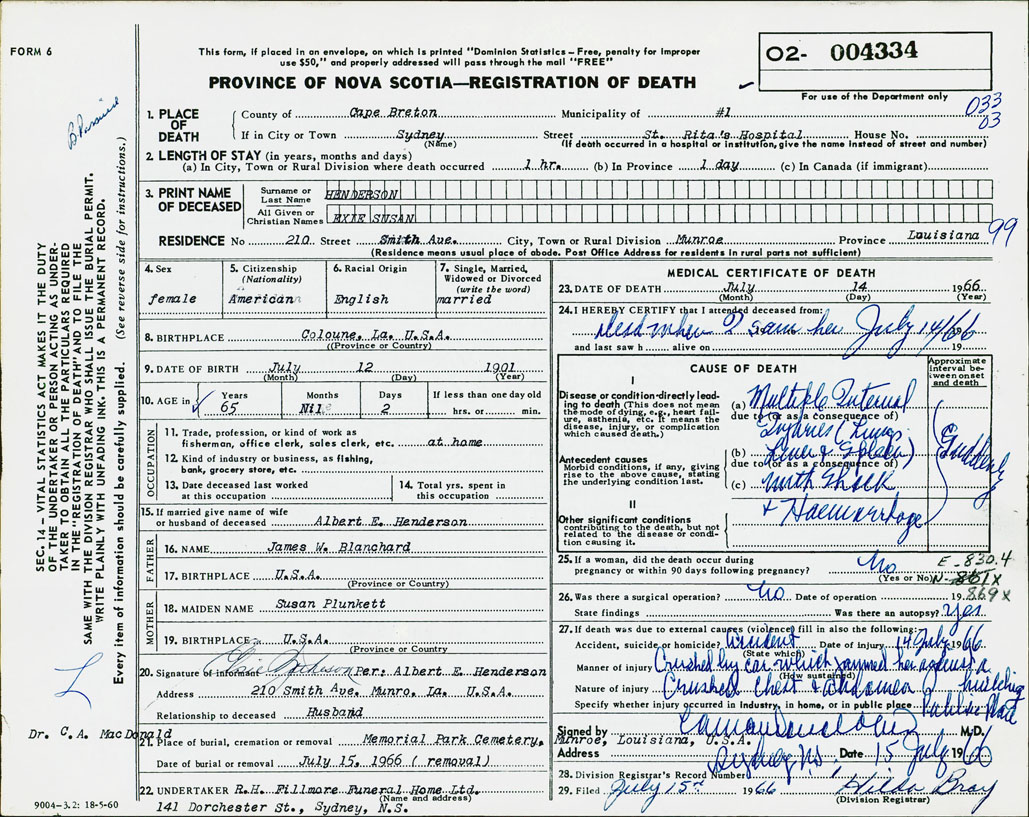 FORM 6
This form, if placed in an envelope, on which is printed "Dominion Statistics – Free, penalty for improper
use $50," and properly addressed will pass through the mail "FREE"
PROVINCE OF NOVA SCOTIA—REGISTRATION OF DEATH
02- 004334
For use of the Department only
033
03
1. PLACE OF DEATH
County of Cape Breton Municipality of #1
If in City or Town Sydney Street St. Rita's Hospital House No.
(Name) (If death occurred in a hospital or institution, give the name instead of street and number)
2. LENGTH OF STAY (in years, months and days)
(a) In City, Town or Rural Division where death occurred 1 hr. (b) In Province 1 day (c) In Canada (if immigrant)
3. PRINT NAME OF DECEASED
Surname or Last Name HENDERSON
All Given or Christian Names EXIE SUSAN
RESIDENCE No 210 Street Smith Ave. City, Town or Rural Division Munroe Province Louisiana 99
(Residence means usual place of abode. Post Office Address for residents in rural parts not sufficient)
4. Sex
female
5. Citizenship (Nationality)
American
6. Racial Origin
English
7. Single, Married, Widowed or Divorced (write the word)
married
8. BIRTHPLACE Coloune, La. U.S.A.
(Province or Country)
9. DATE OF BIRTH July 12 1901
(Month) (Day) (Year)
10. AGE in
Years 65
Months Nil
Days 2
If less than one day old
hrs. or min.
OCCUPATION
11. Trade, profession, or kind of work as
fisherman, office clerk, sales clerk, etc. at home
12. Kind of industry or business, as fishing,
bank, grocery store, etc.
13. Date deceased last worked
at this occupation
14. Total yrs. spent in
this occupation
15. If married give name of wife
or husband of deceased Albert E. Henderson
FATHER
16. NAME James W. Blanchard
17. BIRTHPLACE U.S.A.
(Province or Country)
MOTHER
18. MAIDEN NAME Susan Plunkett
19. BIRTHPLACE U.S.A.
(Province or Country
20. Signature of informant Per: Albert E. Henderson
Address 210 Smith Ave. Munro, La. U.S.A.
Relationship to deceased Husband
Dr. C. A. MacDonald
21. Place of burial, cremation or removal Memorial Park Cemetery, Munroe, Louisiana, U.S.A.
Date of burial or removal July 15, 1966 ( removal)
22. UNDERTAKER R.H. Fillmore Funeral Home Ltd.
(Name and address)
141 Dorchester St., Sydney, N.S.
9004-3.2: 18-5-60
MEDICAL CERTIFICATE OF DEATH
23. DATE OF DEATH July 14 1966
(Month) (Day) (Year)
24. I HEREBY CERTIFY that I attended deceased from:
Dead when I saw her July 14/66 19
and last saw h alive on 19
CAUSE OF DEATH
Approximate interval between onset and death
I
Disease or condition directly leading to death (This does not mean the mode of dying, e.g., heart failure, asthenia, etc. It means the disease, injury, or complication which caused death.)
(a) Multiple Internal
due to (or as a consequence of)
Injuries (Lung,
Antecedent causes
Morbid conditions, if any, giving rise to the above cause, stating the underlying condition last.
(b) Liver & Spleen)
due to (or as a consequence of)
(c) with Shock
& Haemorrhage
Suddenly
II
Other significant conditions
contributing to the death, but not related to the disease or condition causing it.
25. If a woman, did the death occur during
pregnancy or within 90 days following pregnancy? No
(Yes or No)
E - 830.4
N- 861X
869X
26. Was there a surgical operation? No Date of operation 19
State findings Was there an autopsy? Yes
27. If death was due to external causes (violence) fill in also the following:
Accident, suicide or homicide? Accident Date of injury 14 July 1966
(State which)
Manner of injury Crushed by car which jammed her against a building
(How sustained)
Nature of injury Crushed Chest & Abdomen
Specify whether injury occurred in Industry, in home, or in public place Public Place
Signed by M.D.
Address Sydney N.S. Date 15 July 1966
28. Division Registrar's Record Number
29. Filed July 15th 1966 Hilda Bray
(Division Registrar)
SEC. 14 – VITAL STATISTICS ACT MAKES IT THE DUTY
OF THE UNDERTAKER OR PERSON ACTING AS UNDER-
TAKER TO OBTAIN ALL THE PARTICULARS REQUIRED
IN THE "REGISTRATION OF DEATH" AND TO FILE THE
SAME WITH THE DIVISION REGISTRAR WHO SHALL ISSUE THE BURIAL PERMIT.
WRITE PLAINLY WITH UNFADING INK. THIS IS A PERMANENT RECORD.
Every item of information should be carefully supplied. (See reverse side for instructions.)